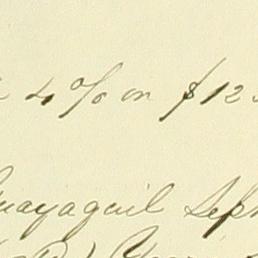 4% on $12
Guayaquil Sep